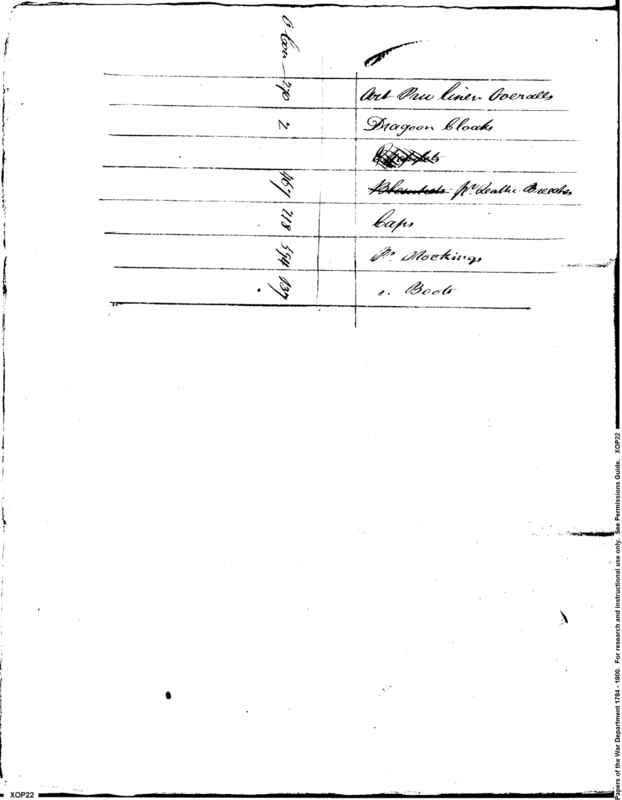 Art Prw linen Overalls 270
Dragoon Cloaks 2
Blankets pr. Leathr. Breeches 467
Caps 718
Pr. Stockings
Boots 137
Papers of the War Department 1784 - 1800. For research and instructional use only. See Permissions Guide. XOP22
XOP22